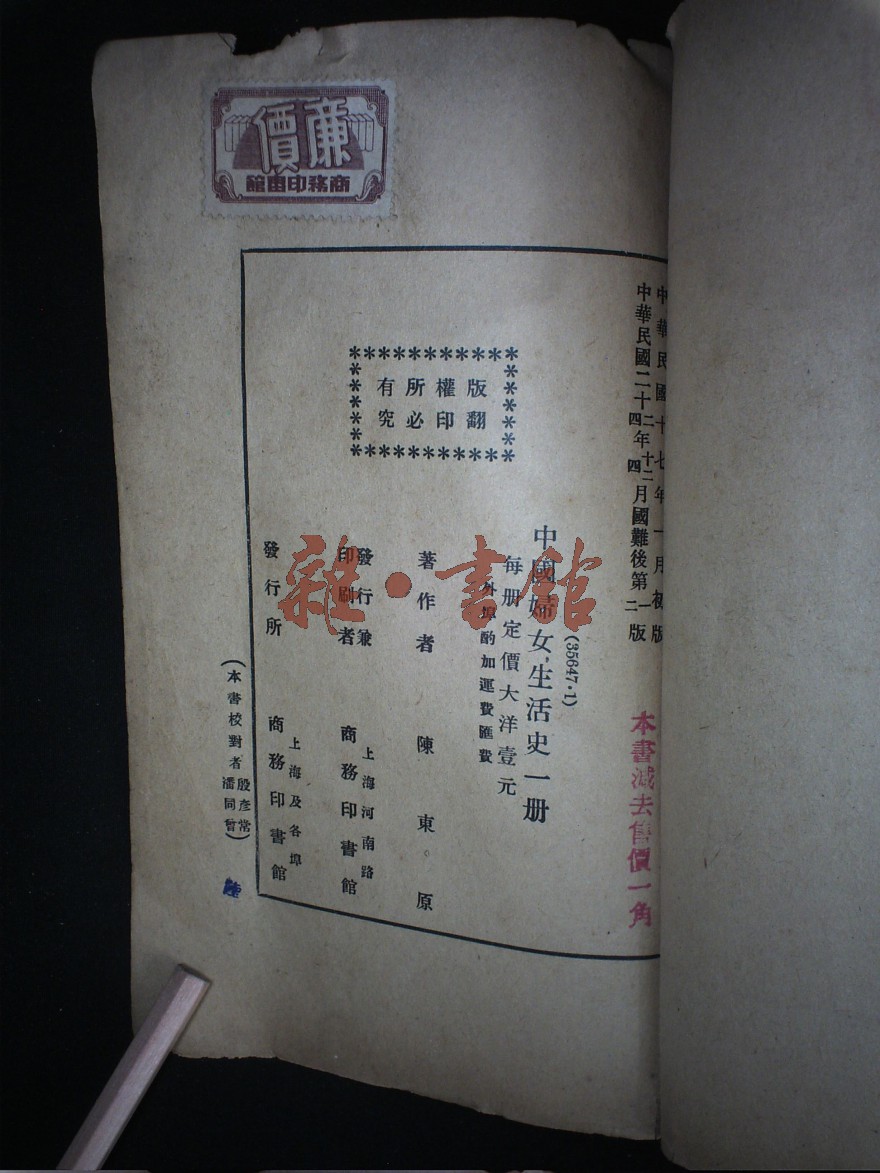 廉價
商務印書館
中華民國十七年一月初版
中華民國二十二年十二月國難後第一版
中華民國二十四年四月國難後第二版
本書減去售價一角
版權所有
翻印必究
(35647·1)
中國婦女生活史一册
每册定價大洋壹元
外埠酌加運費匯費
著作者 陳東原
發行兼印刷者 上海河南路
商務印書館
發行所 上海及各埠
商務印書館
(本書校對者 殷彥常 潘同曾)
雜·書館